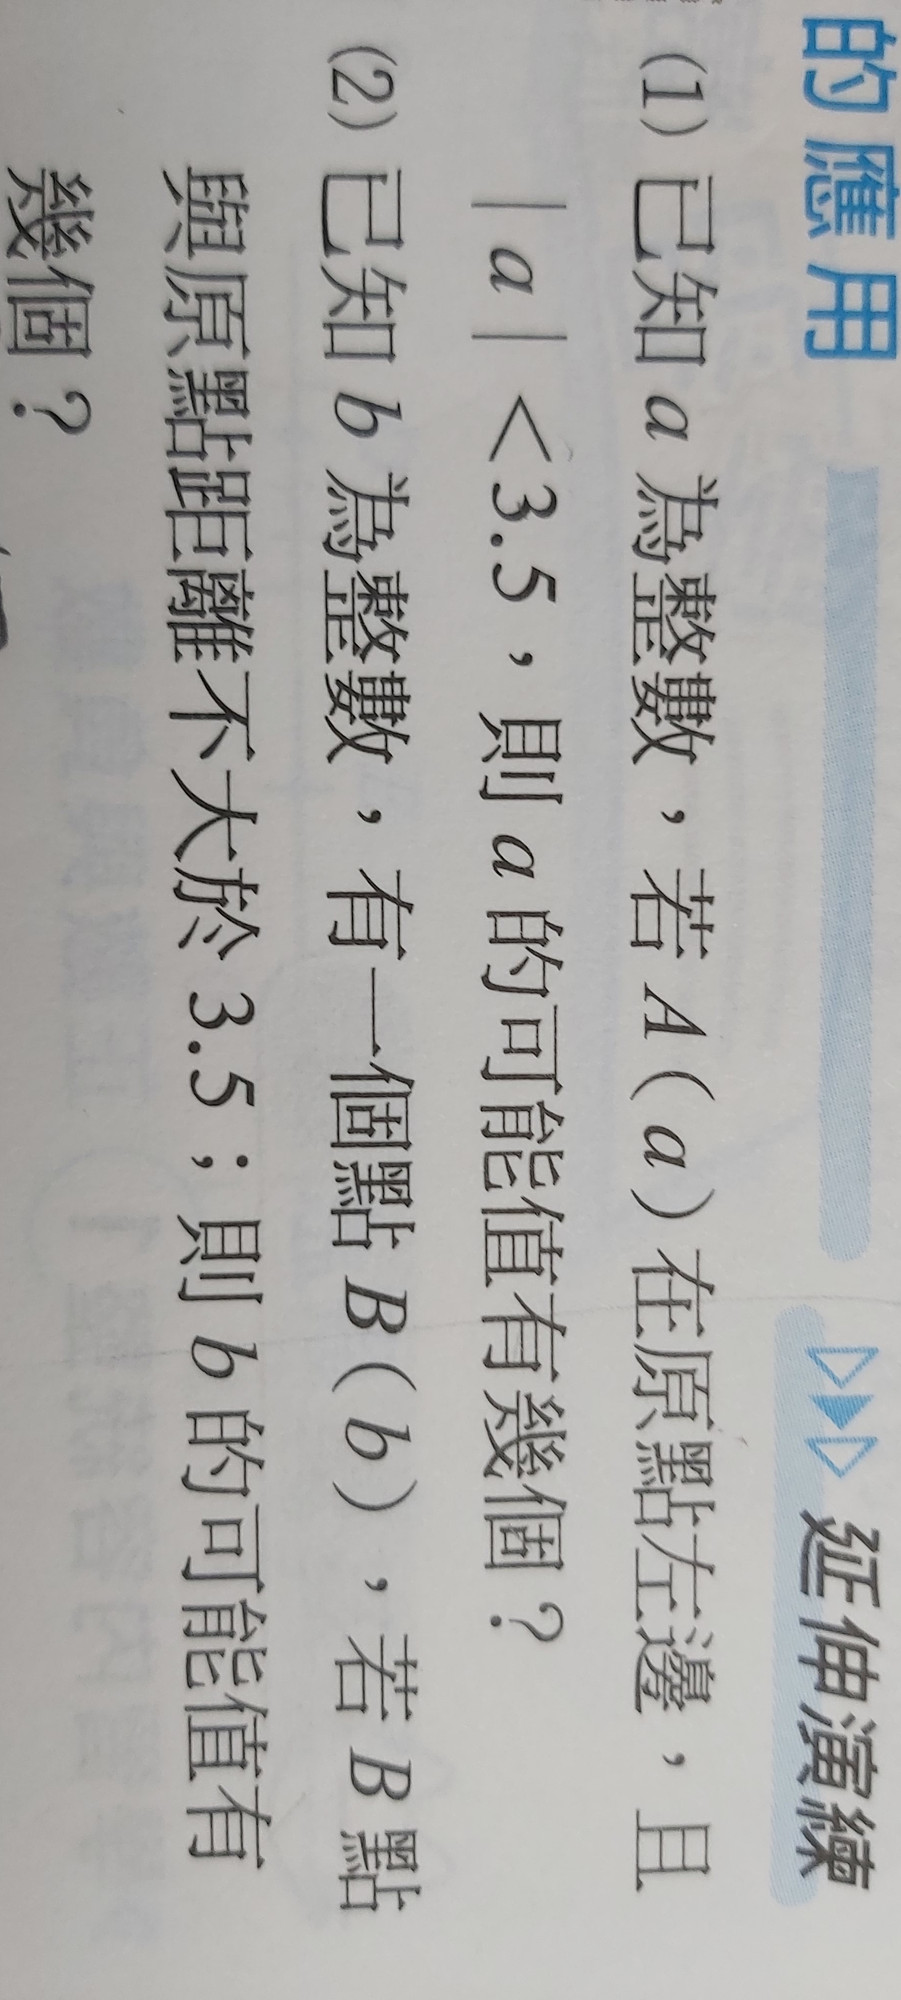 的應用
延伸演練
(1) 已知 a 為整數，若 A(a) 在原點左邊，且
|a| <3.5，則 a 的可能值有幾個？
(2) 已知 b 為整數，有一個點 B(b)，若 B 點
與原點距離不大於 3.5；則 b 的可能值有
幾個？